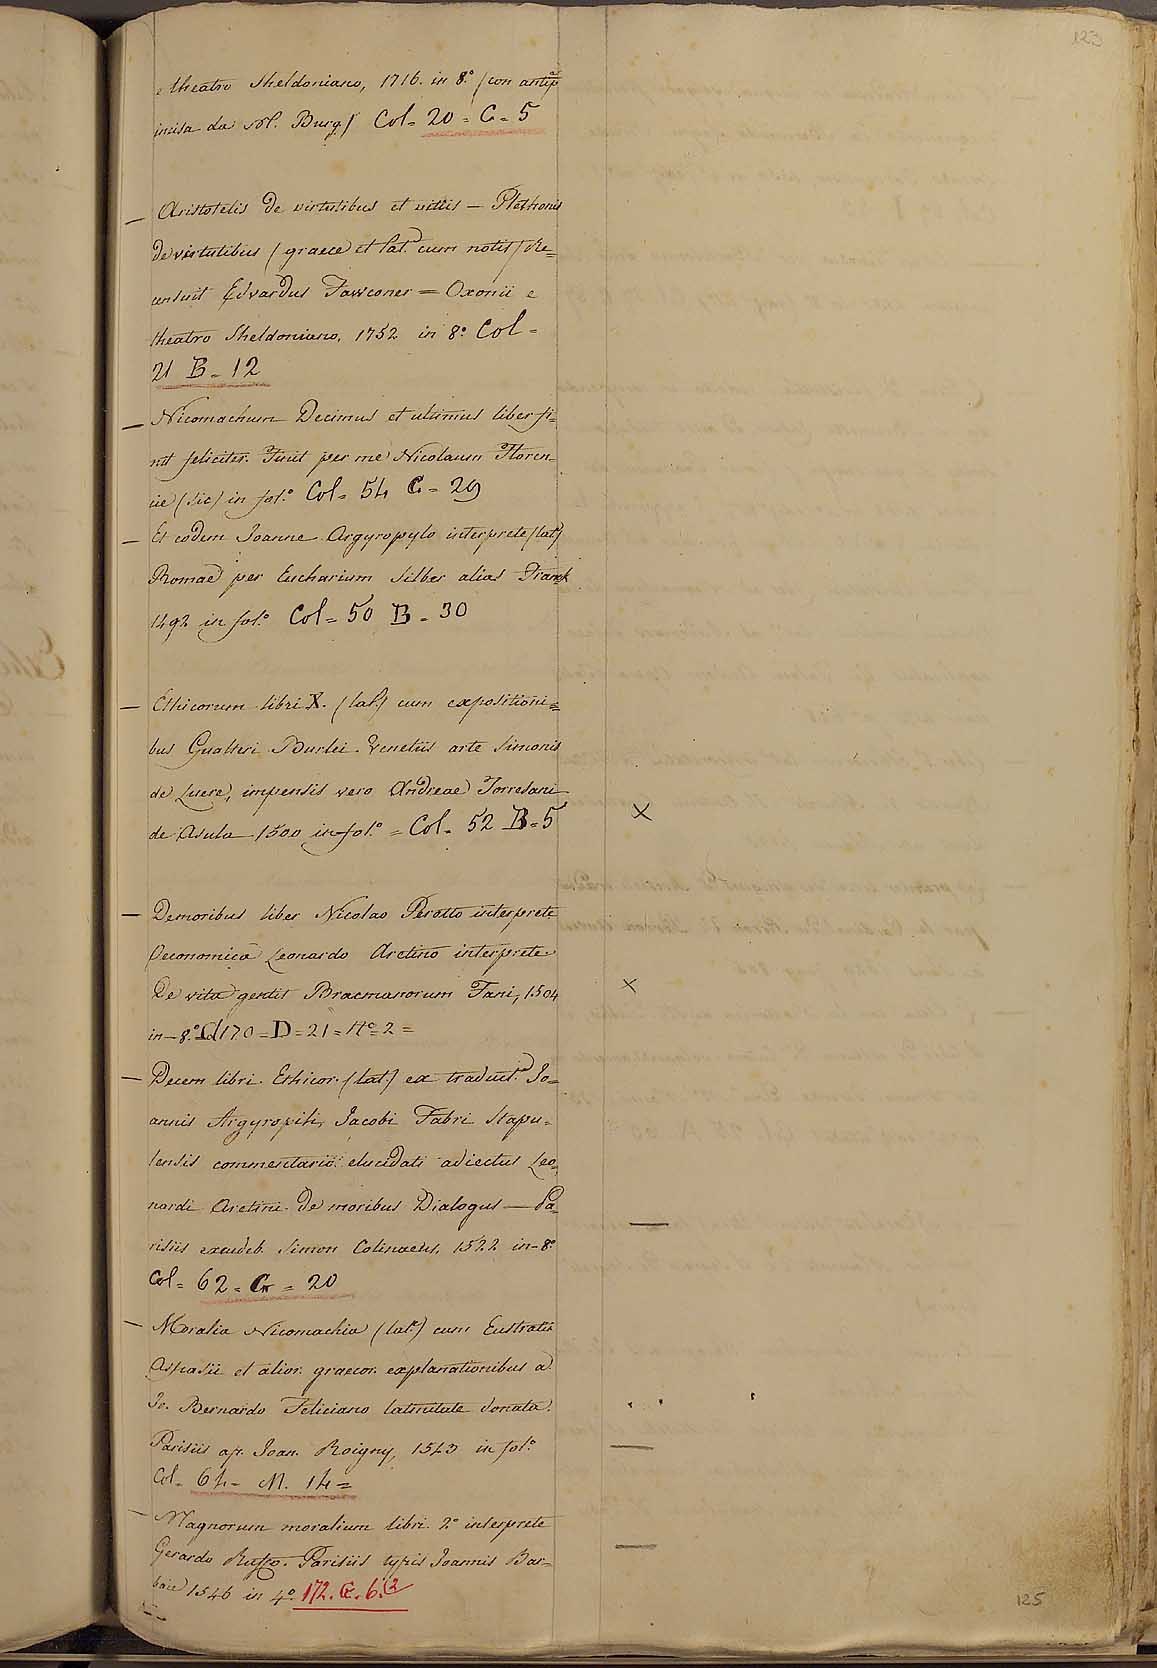 123
e theatro Sheldoniano, 1716. in 8.° (con antip
incisa da M. Burg) Col= 20 = C= 5
— Aristotelis de virtutibus et vitiis — Plethonis
de virtutibus (graece et lat. cum notis) Re=
censuit Edvardus Fawconer = Oxonii e
theatro Sheldoniano, 1752 in 8.° Col=
21 B= 12
— Nicomachum Decimus et ultimus liber fi=
nit feliciter. Finit per me Nicolaum Floren=
tie (sic) in fol.° Col= 54 C= 29
— Et eodem Joanne Argyropylo interprete (lat.)
Romae per Eucharium Silber alias Franck
1492 in fol.° Col= 50 B= 30
— Ethicorum libri X. (lat.) cum expositioni=
bus Gualteri Burlei. Venetiis arte Simonis
de Luere, impensis vero Andreae Torresani
de Asula 1500 in fol.° = Col= 52 B=5 ×
— Demoribus liber Nicolao Perotto interprete
Oeconomica Leonardo Aretino interprete
De vita gentis Bracmanorum Fani, 1504 ×
in-8.° Col 170=D=21=N°=2=
— Decem libri. Ethicor. (lat.) ex traduct. Jo=
annis Argyropili, Jacobi Fabri Stapu=
lensis commentario elucidati adiectus Leo=
nardi Aretini de moribus Dialogus — Pa= —
risiis excudeb. Simon Colinaeus, 1522 in-8.°
Col= 62= G= 20
— Moralia Nicomachia (lat.) cum Eustratii
Aspasii et alior. graecor. explanationibus a
Jo. Bernardo Feliciano latinitate donata.
Parisiis ap. Joan. Roigny, 1543 in fol.° —
Col= 64= M. 14=
— Magnorum moralium libri. 2° interprete
Gerardo Ruffo. Parisiis typis Joannis Bar= —
baei 1546 in 4.° 172. G. 6.
125